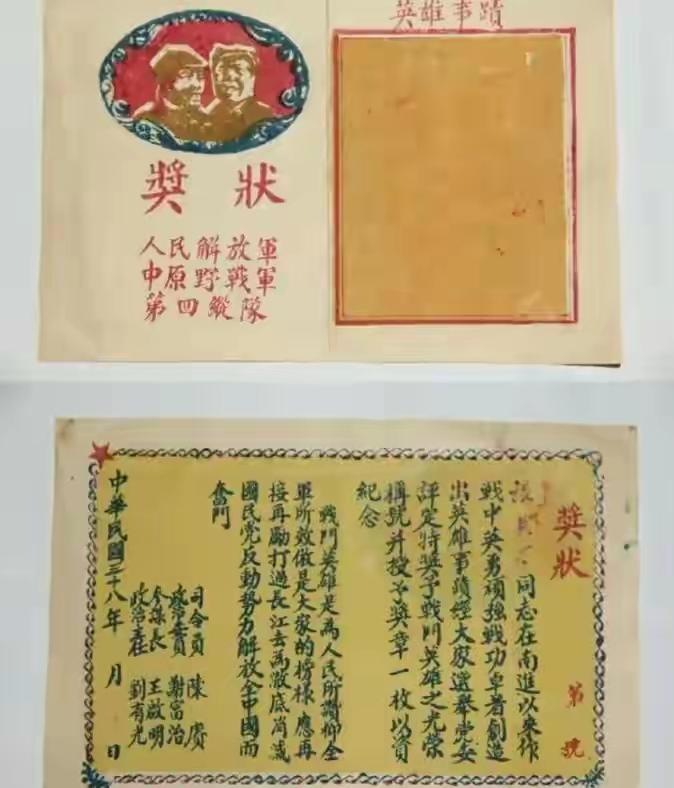 英雄事蹟
獎狀
人民解放軍
中原野戰軍
第四縱隊
獎狀
第 號
同志在南進以來作
戰中英勇頑強戰功卓著創造
出英雄事蹟經大家選舉党委
評定特獎予戰鬥英雄之光榮
稱號并授予獎章一枚以資
紀念
戰鬥英雄是為人民所讚仰全
軍所效倣是大家的榜樣應再
接再勵打過長江去為澈底消滅
國民党反動勢力解放全中國而
奮鬥
司令員 陳賡
政治委員 謝富治
參謀長 王啟明
政治主任 劉有光
中華民國三十八年 月 日